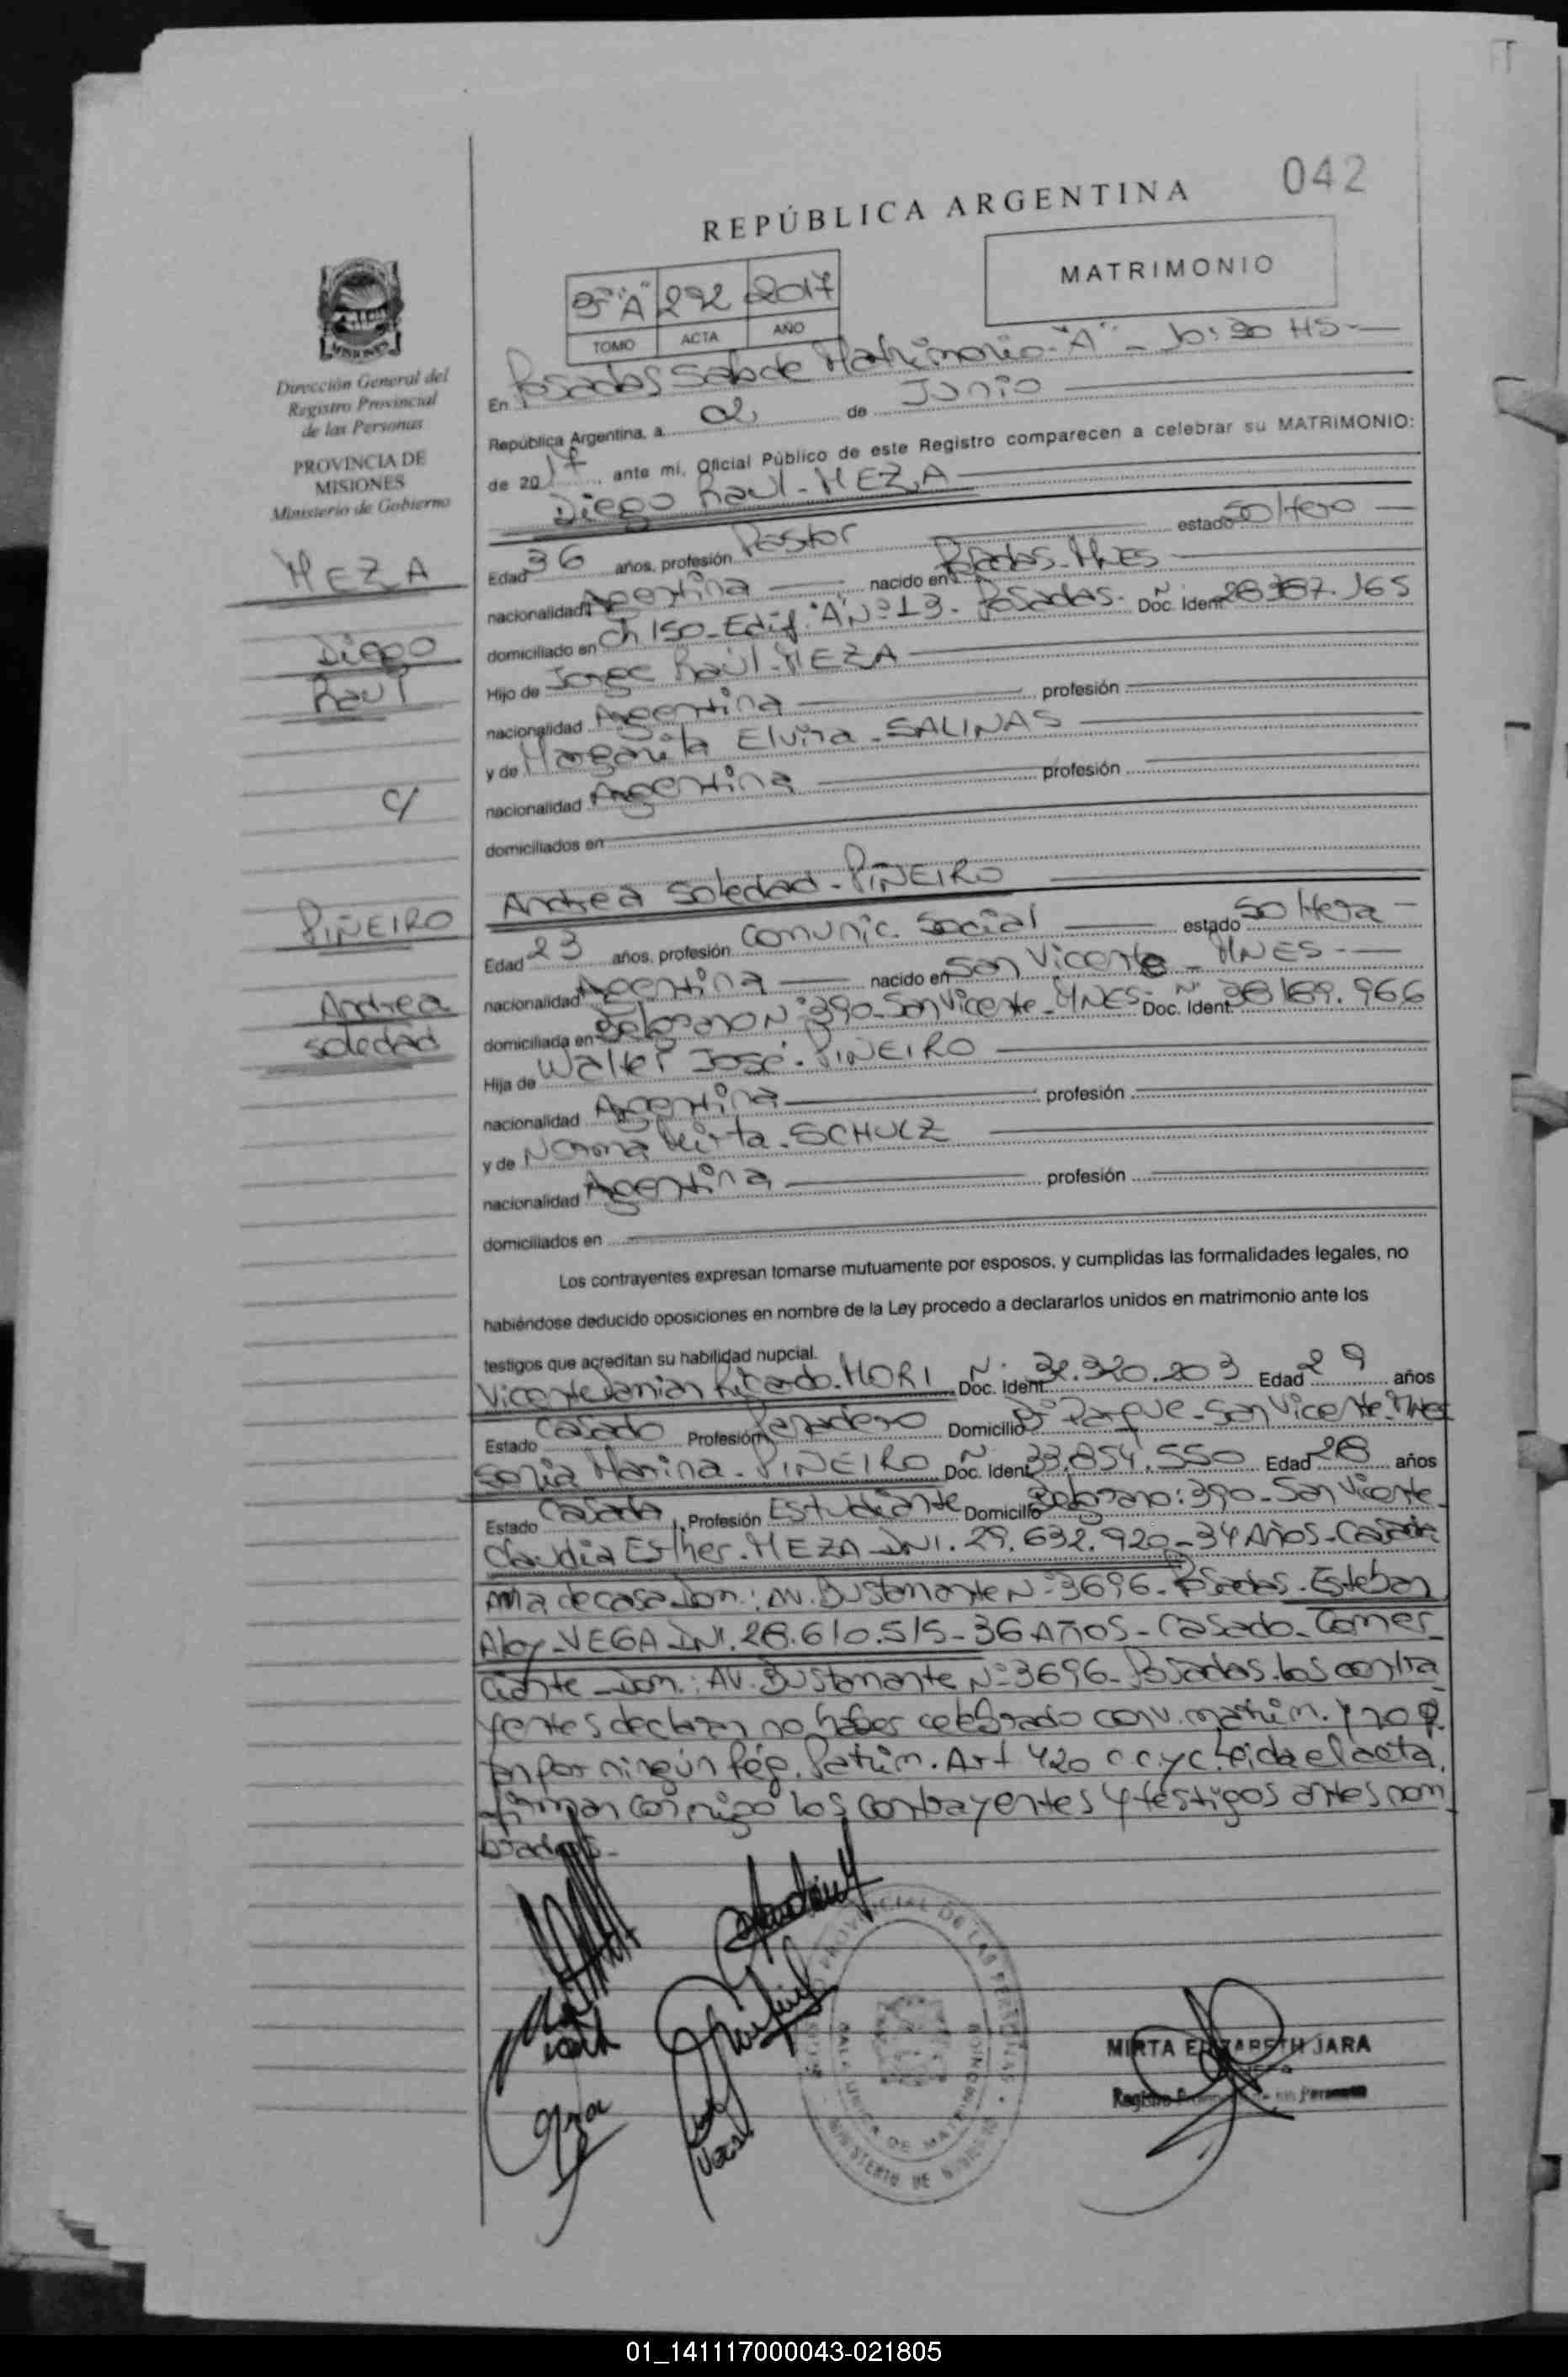 042
REPÚBLICA ARGENTINA
MATRIMONIO
3º "A" 292 2017
TOMO ACTA AÑO
MISIONES
Dirección General del
Registro Provincial
de las Personas
PROVINCIA DE
MISIONES
Ministerio de Gobierno
MEZA
Diego
Raul
c/
PIÑEIRO
Andrea
Soledad
En Posadas Sala de Matrimonio "A" - 10:30 HS-
República Argentina, a 02 de Junio
de 2017, ante mi, Oficial Público de este Registro comparecen a celebrar su MATRIMONIO:
Diego Raul - MEZA
Edad 36 años, profesión Pastor estado Soltero
nacionalidad Argentina nacido en Posadas - MNES
domiciliado en Ch 150 - Edif. "A" Nº 13 - Posadas - Doc. Ident. Nº 28.387.165
Hijo de Jorge Raúl - MEZA
nacionalidad Argentina profesión
y de Margarita Elvira - SALINAS
nacionalidad Argentina profesión
domiciliados en
Andrea Soledad - PIÑEIRO
Edad 23 años, profesión Comunic. Social estado Soltera
nacionalidad Argentina nacido en San Vicente - MNES -
domiciliada en Belgrano Nº 390 - San Vicente - MNES - Doc. Ident. Nº 38.189.966
Hija de Walter José - PIÑEIRO
nacionalidad Argentina profesión
y de Norma Mirta - SCHULZ
nacionalidad Argentina profesión
domiciliados en
Los contrayentes expresan tomarse mutuamente por esposos, y cumplidas las formalidades legales, no
habiéndose deducido oposiciones en nombre de la Ley procedo a declararlos unidos en matrimonio ante los
testigos que acreditan su habilidad nupcial.
Vicente Damian Ricardo - MORI Doc. Ident. Nº 32.320.203 Edad 29 años
Estado Casado Profesión Panadero Domicilio Bº Parque - San Vicente - Mnes
Sonia Marina - PIÑEIRO Doc. Ident. Nº 33.854.550 Edad 28 años
Estado Casada Profesión Estudiante Domicilio Belgrano: 390 - San Vicente -
Claudia Esther - MEZA - DNI. 29.632.920 - 34 Años - Casada
Ama de casa - Dom.: AV. Bustamante Nº 3696 - Posadas - Esteban
Aloy - VEGA - DNI. 28.610.515 - 36 Años - Casado - Comer
ciante - Dom.: AV. Bustamante Nº 3696 - Posadas - Los contra
yentes declaran no haber celebrado conv. matrim. y no op
tan por ningún Rég. Patrim. Art 420 c c y c. Leída el acta,
firman conmigo los contrayentes y testigos antes nom
brados -
MIRTA ELIZABETH JARA
01_141117000043-021805